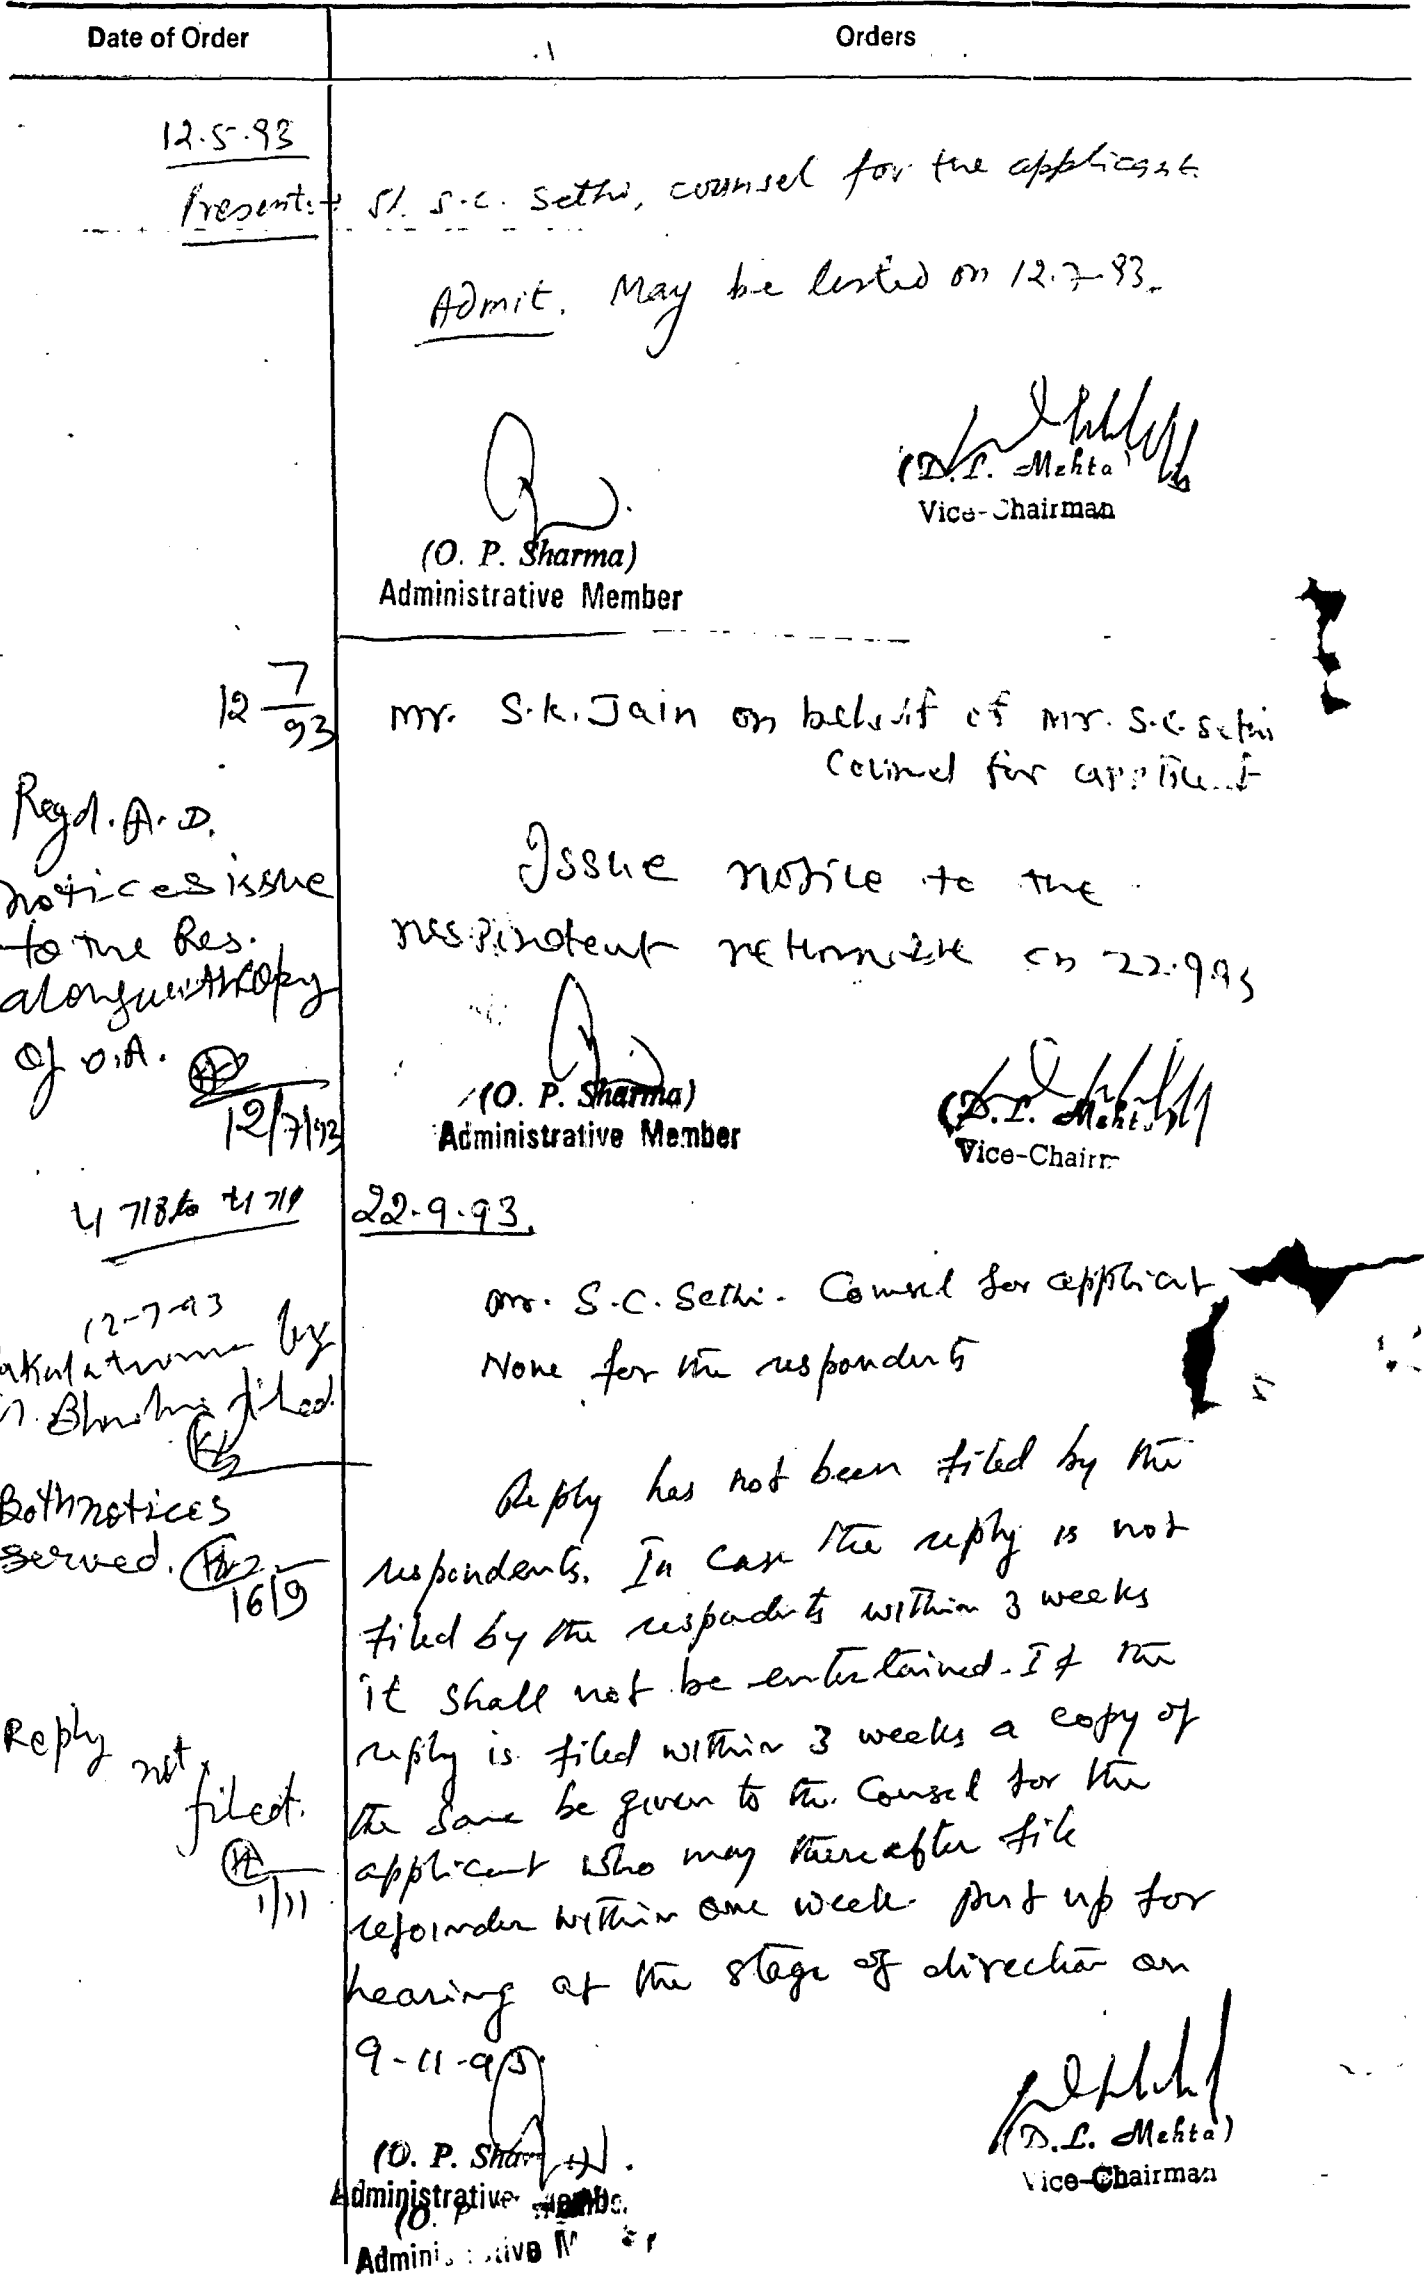 Date of Order
Orders
12.5.93
Present:- Sh. S.C. Sethi, counsel for the applicant.
Admit. May be listed on 12.7.93.
(D. L. Mehta)
Vice-Chairman
(O. P. Sharma)
Administrative Member
12 7/93
Mr. S.K. Jain on behalf of Mr. S.C. Sethi
Counsel for applicant
Issue notice to the
respondent returnable on 22.9.93
(O. P. Sharma)
Administrative Member
(D. L. Mehta)
Vice-Chairm
Regd. A. D.
notices issue
to the Res.
alongwith copy
of O.A.
12/7/93
12-7-93
by
filed.
Both notices
served.
16/9
Reply not
filed.
1/11
22.9.93.
Mr. S.C. Sethi - Counsel for applicant
None for the respondents
Reply has not been filed by the
respondents. In case the reply is not
filed by the respondents within 3 weeks
it shall not be entertained. If the
reply is filed within 3 weeks a copy of
the same be given to the counsel for the
applicant who may thereafter file
rejoinder within one week. Put up for
hearing at the stage of direction on
9-11-93.
(O. P. Shar
Administrative Membe
(O. P
Admini tive M r
(D. L. Mehta)
Vice-Chairman